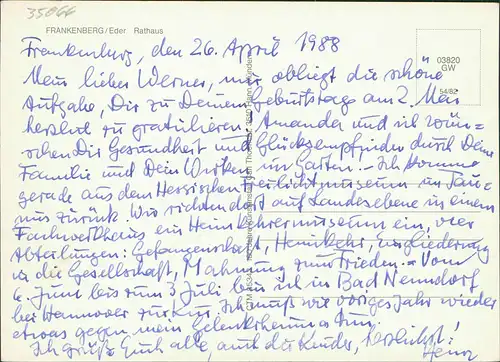 35066
FRANKENBERG/Eder Rathaus
03820
GW
54/82
Frankenberg, den 26. April 1988
Mein lieber Werner, mir obliegt die schöne
Aufgabe, Dir zu Deinem Geburtstage am 2. Mai
herzlich zu gratulieren! Amanda und ich wün-
schen Dir Gesundheit und Glücksempfinden durch Deine
Familie und Dein Wirken im Garten. – Ich komme
gerade aus dem Hessischen Freilichtmuseum im Tau-
nus zurück. Wir richten dort auf Landesebene in einem
Fachwerkhaus ein Heimkehrermuseum ein, vier
Abteilungen: Gefangenschaft, Heimkehr, Eingliederung
in die Gesellschaft, Mahnung zum Frieden. – Vom
6. Juni bis zum 3. Juli bin ich in Bad Nenndorf
bei Hannover zur Kur. Ich muß wie voriges Jahr wieder
etwas gegen mein Gelenkrheuma tun.
Ich grüße Euch alle, auch die Kinder, herzlichst!